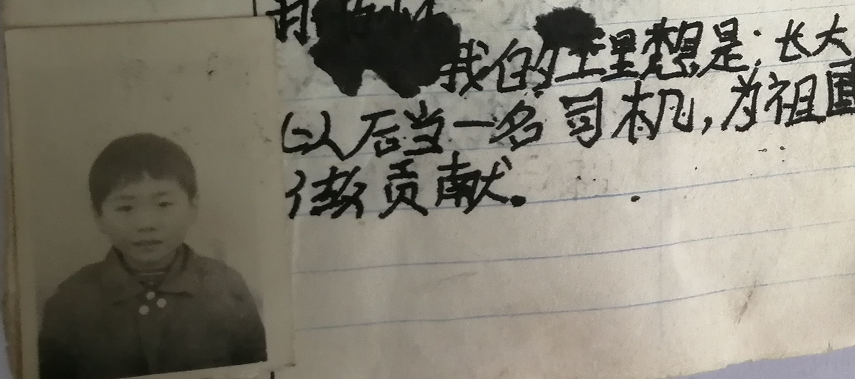 我的理想是：长大
以后当一名司机，为祖国
做贡献。